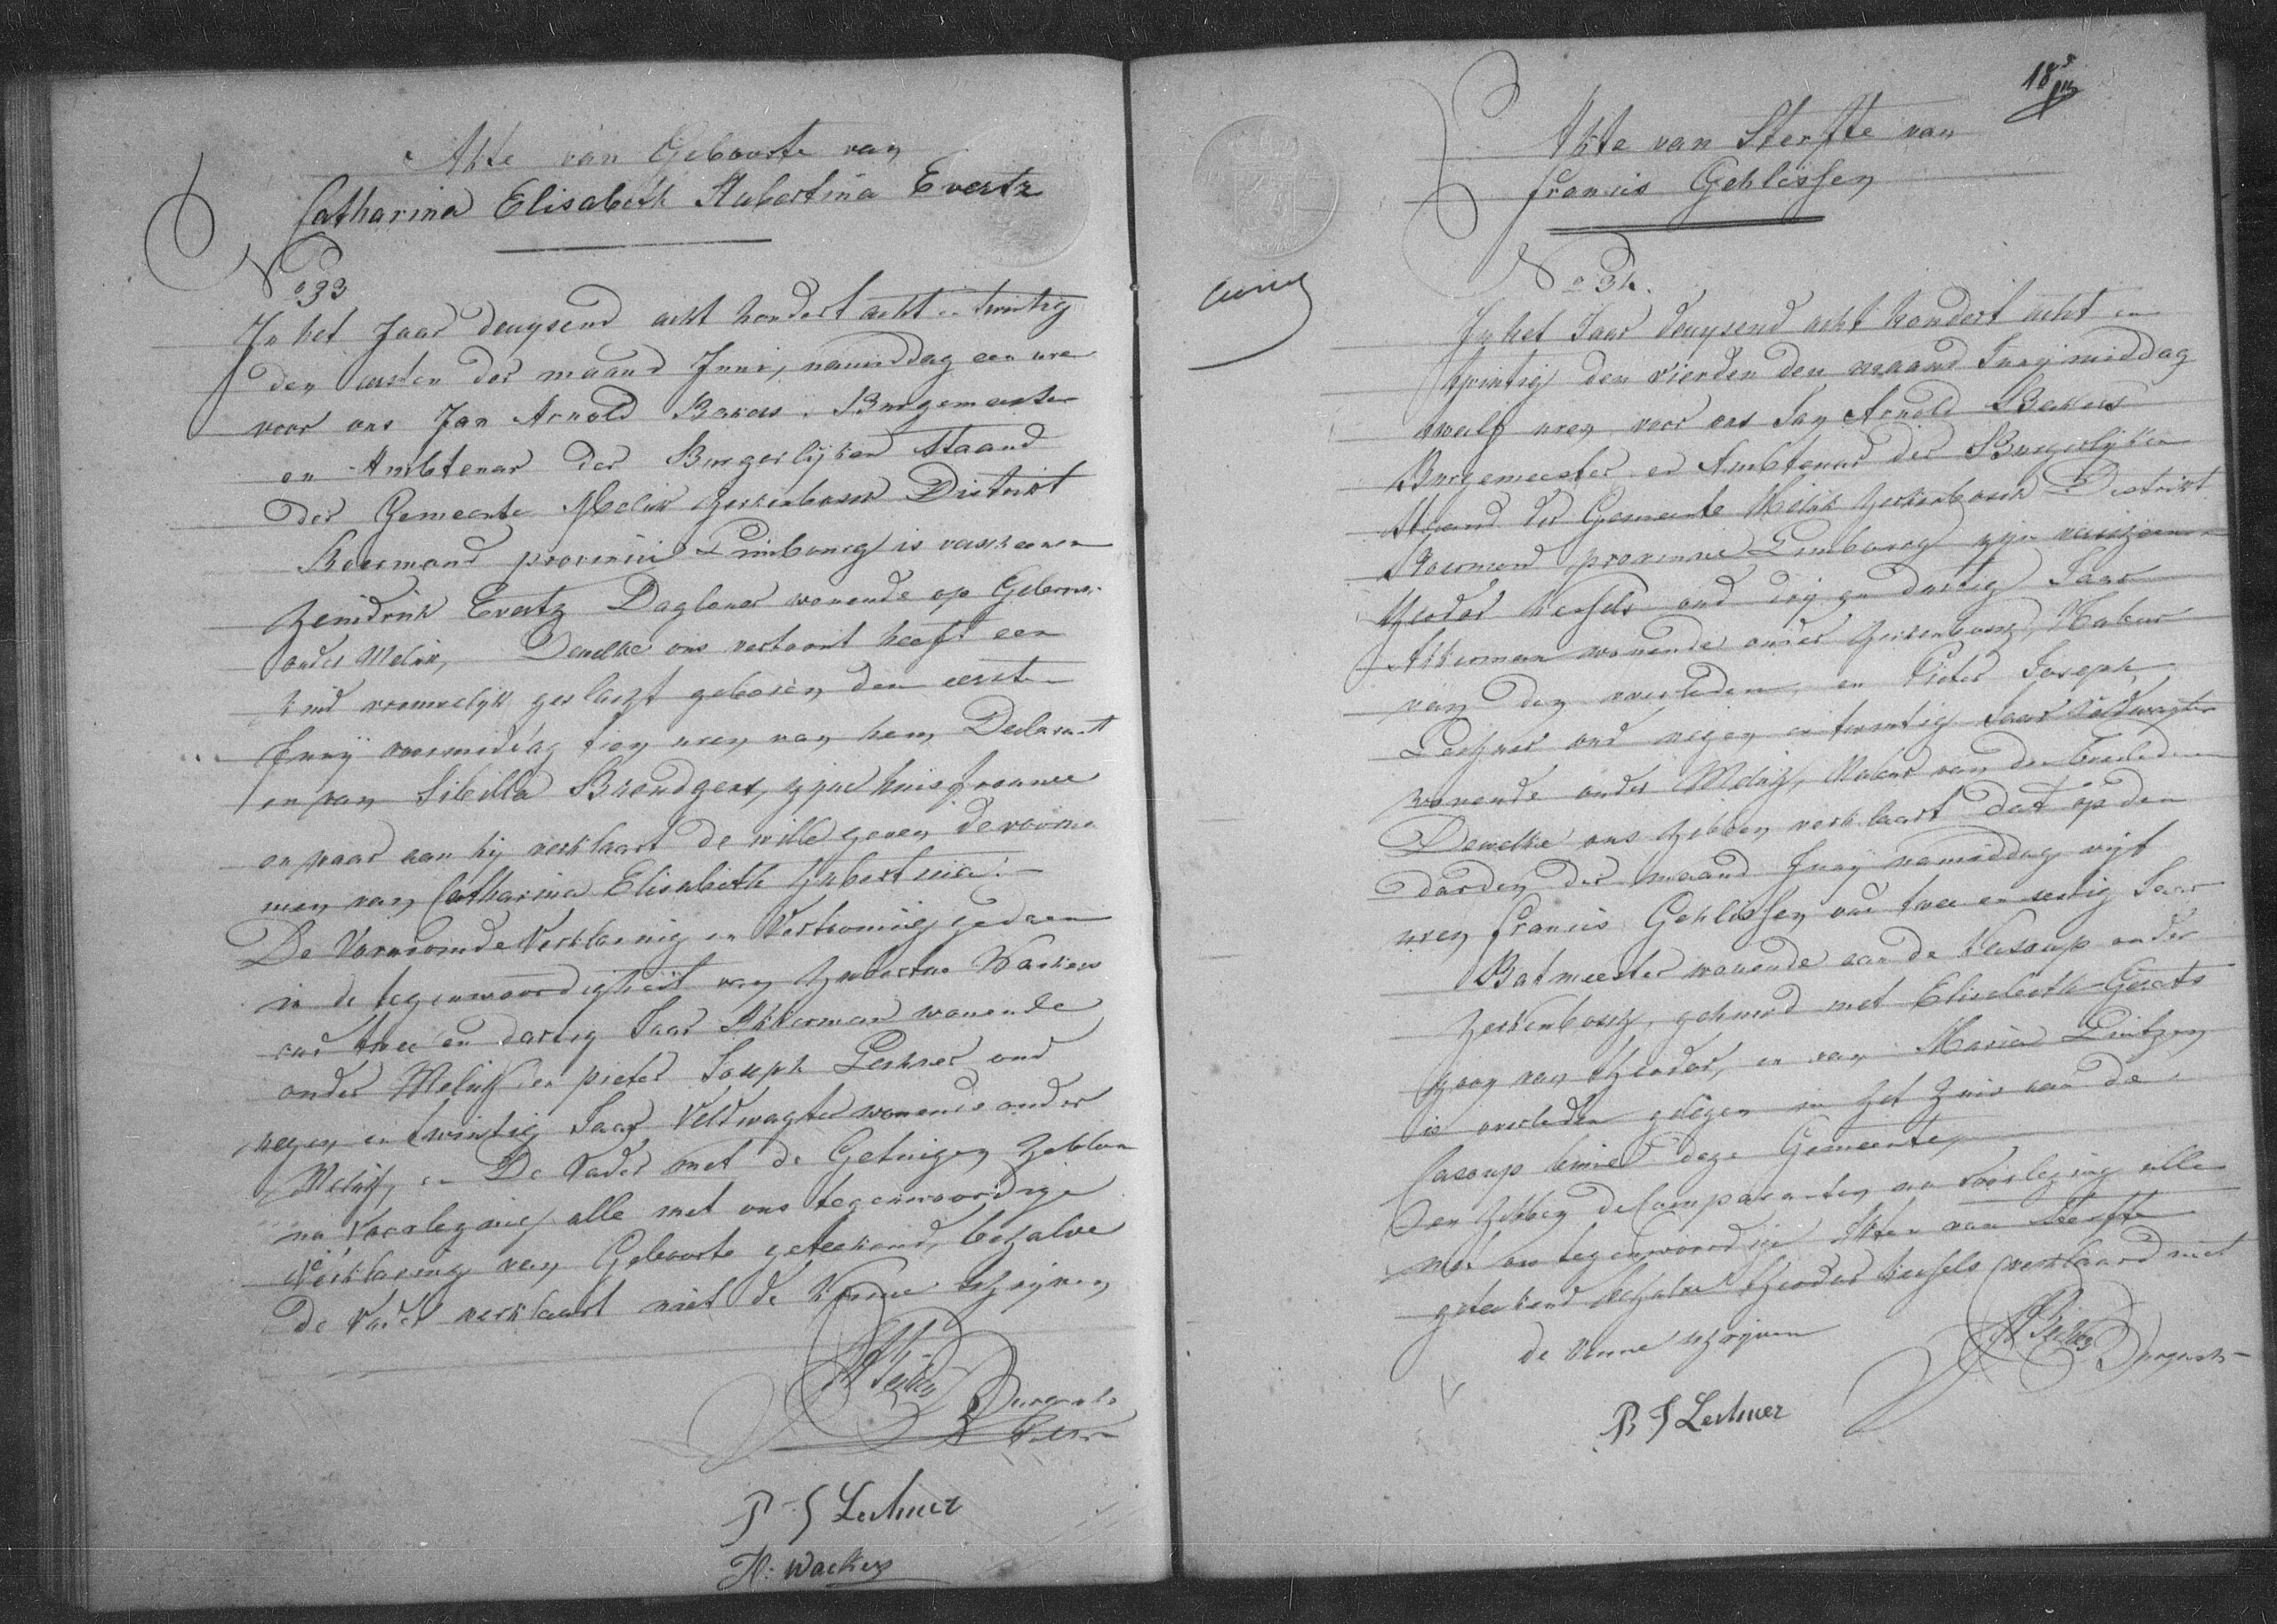 Akte van Geboorte van
Catharina Elisabeth Hubertina Evertz
No 33
In het Jaar duysend acht hondert acht en twintig
den eersten der maand Juni, namiddag een ure
voor ons Jan Arnold Bakers Burgemeester
en Ambtenar der Burgerlijken Staand
der Gemeente Melick Herkenbosch District
Roermond provincie Limbourg is verscheenen
Hendrik Evertz Dagloner wonende op
onder Melick, Dewelke ons vertoont heeft een
kind vrouwelijk geslacht geboren den eersten
Juny voormiddag tien uren van hem Declarant
en van Sibilla Brendgens, zijne huisfrouwe
en waar aan hij verklaart de wille geven de voorna
men van Catharina Elisabeth Hubertina
De Vornoomde Verklaring en Vertooning gedaen
in de tegenwoordigheit van Hubertus Wackers
oud twee en dartig Jaar Akkerman wonende
onder Melick en pieter Joseph Lechner oud
negen en twintig Jaar Veldwagter wonende onder
Melick, en De Vader met de Getuigen hebben
na Voorlezing alle met ons tegenwoordige
Verklaring van Geboorte geteekend, behalve
De Vader verklaart niet de konne schrijven
P J Lechner
H: Wackers
18
Akte van Sterfte van
Francis Gehlissen
No 34.
In het Jaar duysend acht hondert acht en
twintig den vierden der maand Juny middag
twaelf uren voor ons Jan Arnold Bakers
Burgemeester en Ambtenar der Burgerlijken
Staand der Gemeente Melick Herkenbosch District
Roermond, provincie Limbourg zijn verscheenen
Theodor Kessels oud drij en dartig Jaar
Akkerman wonende onder Herkenbosch, Nabuur
van den overleden, en Pieter Joseph
Lechner oud negen en twintig Jaar Veldwagter
wonende onder Melick, Nabuur van den overleden
Dewelke ons hebben verklaart dat op den
darden der maand Juny namiddag vijf
uren Francis Gehlissen oud twee en sestig Jaar
wonende aan de onder
Herkenbosch, gehuwd met Elisabeth Geerts
zoon van Theodor, en van Maria
is overleden gelegen in het huis aan de
binnen deze Gemeente,
en hebben de Comparanten na Voorlezing alle
met ons tegenwoordige Akte van Sterfte
geteekend behalve Theodor Kessels verklaard niet
de konne schrijven
P J Lechner